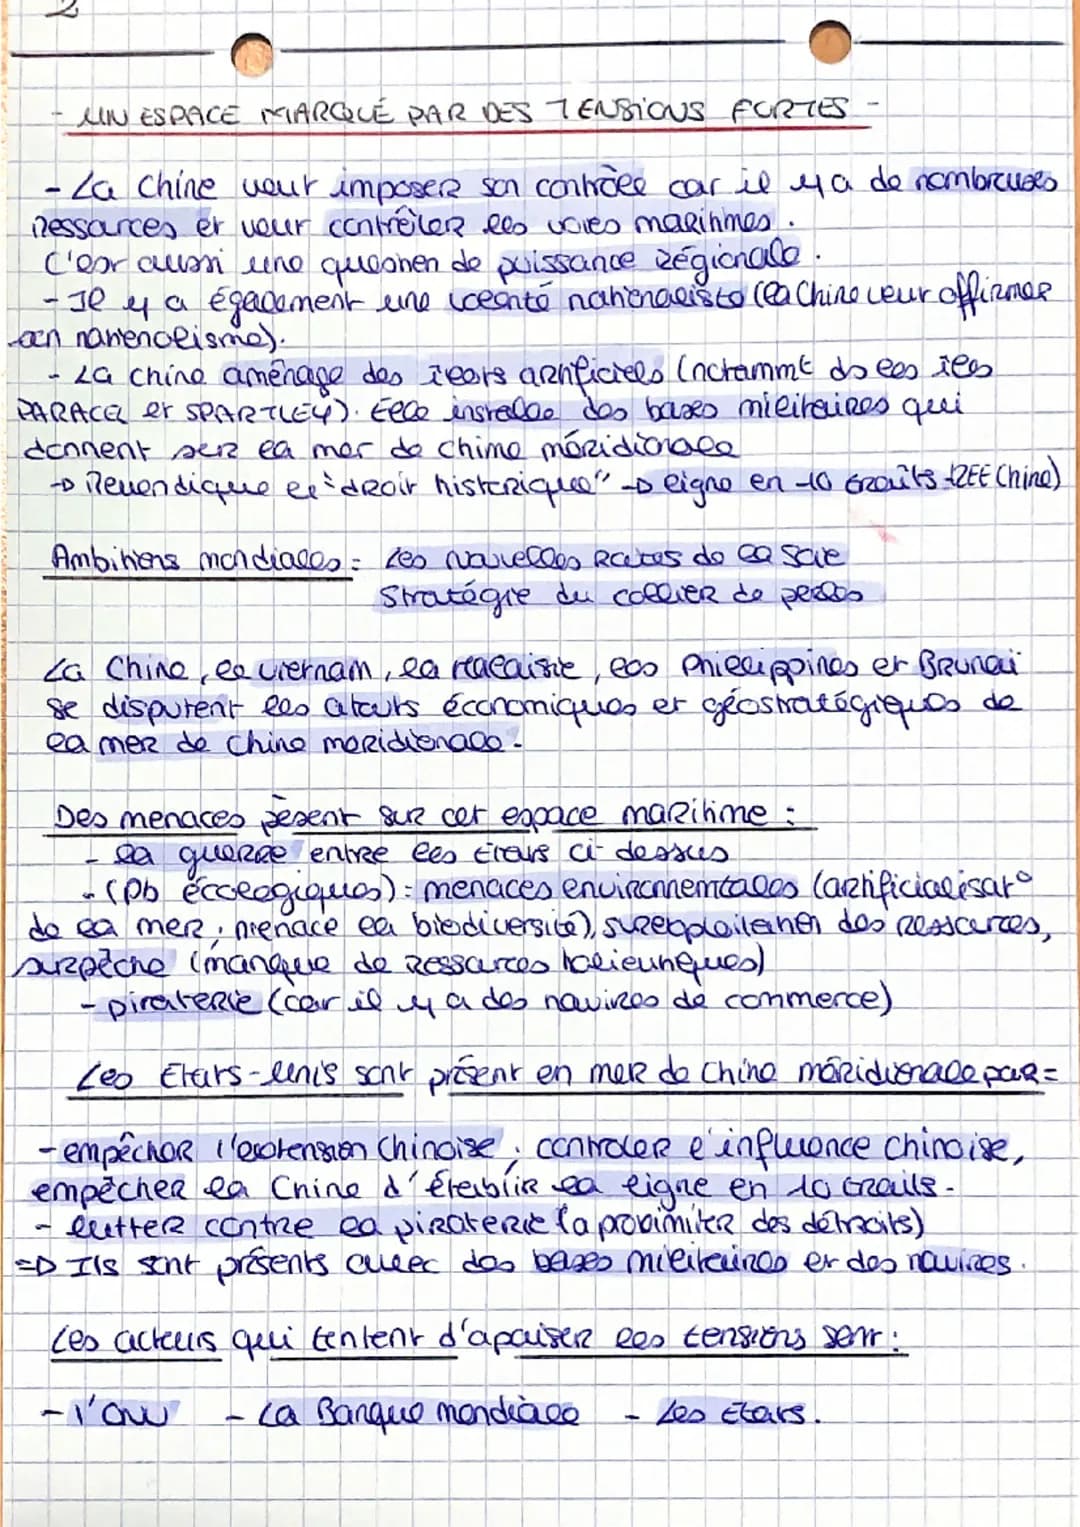 2
- UN ESPACE MARQUÉ PAR DES TENSIONS FORTES -
- La Chine veut imposer son contrôle car il y a de nombreuses
ressources et veut contrôler les voies maritimes.
C'est aussi une question de puissance régionale.
- Il y a également une volonté nationaliste (la Chine veut affirmer
son nationalisme).
- La Chine aménage des îlots artificiels (notammt ds les îles
PARACEL et SPARTLEY). Elle installe des bases militaires qui
donnent sur la mer de Chine méridionale
→ Revendique le "droit historique" → ligne en 10 traits (ZEE Chine)
Ambitions mondiales : Les Nouvelles Routes de la Soie
Stratégie du collier de perles
La Chine, le Vietnam, la Malaisie, les Philippines et Brunei
se disputent les atouts économiques et géostratégiques de
la mer de Chine méridionale.
Des menaces pèsent sur cet espace maritime :
- la guerre entre les États ci-dessus
- (Pb écologiques) : menaces environnementales (artificialisat°
de la mer, menace la biodiversité), surexploitation des ressources,
surpêche (manque de ressources halieutiques)
- piraterie (car il y a des navires de commerce)
Les États-Unis sont présent en mer de Chine méridionale par :
- empêcher l'extension Chinoise, controler l'influence chinoise,
empêcher la Chine d'établir la ligne en 10 traits.
- lutter contre la piraterie (a proximiter des détroits)
=> Ils sont présents avec des bases militaires et des navires.
Les acteurs qui tentent d'apaiser les tensions sont :
- l'ONU - La Banque mondiale - Les États.